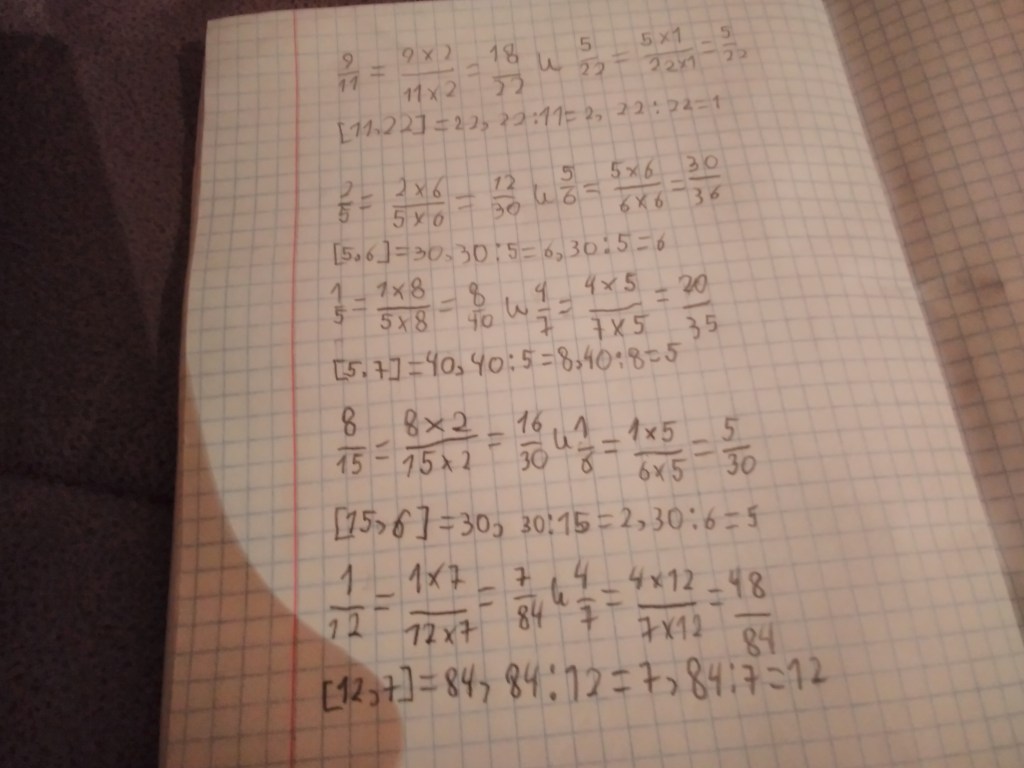 9/11 = 9×2/11×2 = 18/22 и 5/22 = 5×1/22×1 = 5/22
[11,22]=22, 22:11=2, 22:22=1
2/5 = 2×6/5×6 = 12/30 и 5/6 = 5×6/6×6 = 30/36
[5,6]=30, 30:5=6, 30:5=6
1/5 = 1×8/5×8 = 8/40 и 4/7 = 4×5/7×5 = 20/35
[5,7]=40, 40:5=8, 40:8=5
8/15 = 8×2/15×2 = 16/30 и 1/6 = 1×5/6×5 = 5/30
[15,6]=30, 30:15=2, 30:6=5
1/12 = 1×7/12×7 = 7/84 и 4/7 = 4×12/7×12 = 48/84
[12,7]=84, 84:12=7, 84:7=12